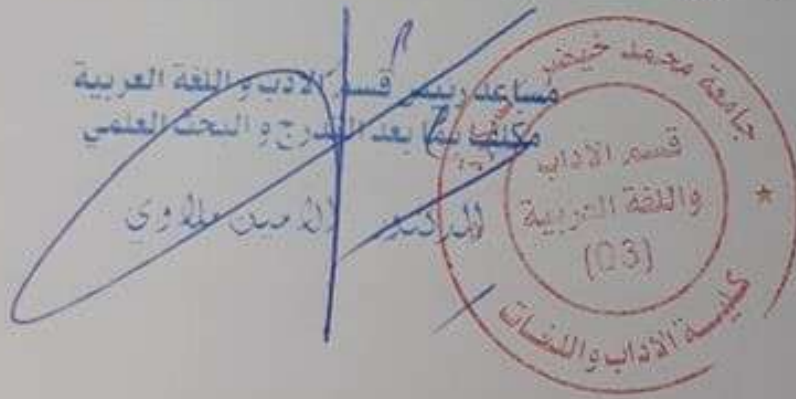 مساعد رئيس قسم الآداب و اللغة العربية
مكلف بما بعد التدرج و البحث العلمي
الدكتور الامين ملاوي
جامعة محمد خيضر
قسم الآداب
واللغة العربية
(03)
كلية الآداب واللغات